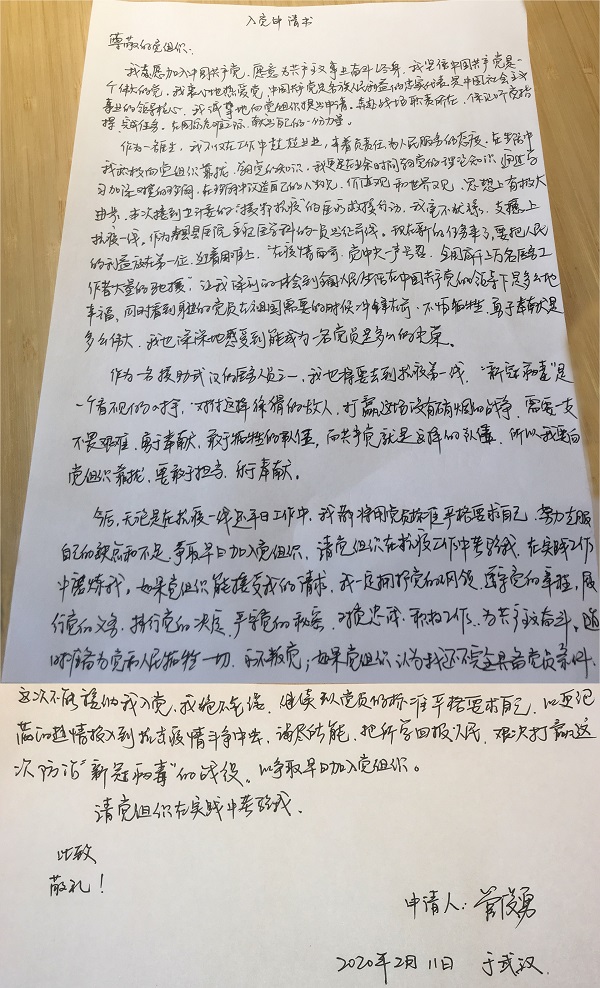 入党申请书
尊敬的党组织:
我志愿加入中国共产党,愿意为共产主义事业奋斗终身,我坚信中国共产党是一
个伟大的党,我衷心地热爱党,中国共产党是各族人民利益的忠实代表,是中国社会主义
事业的领导核心,我诚挚地向党组织提出申请,奔赴战场职责所在,保证听党指
挥,完成任务。在国家危难之际,献出自己的一份力量。
作为一名医生,我不仅在工作中兢兢业业,本着负责任为人民服务的态度,在生活中
我积极向党组织靠拢,学习党的知识,我更是在业余时间学党的理论知识,
习加深对党的认同,在 中改造自己的人生观、价值观和世界观,思想上有极大
进步,本次接到卫计委的"援鄂抗疫"的医疗救援行动,我毫不犹豫,支援上
抗疫一线。作为 县医院 医学科的一员 前线。现在新的任务来了,要把人民
的利益放在第一位,迎着困难上,"在疫情面前,党中央一声号召,全国 上万名医务工
作者大量的驰援",让我深刻的体会到全国人民生活在中国共产党的领导下是多么地
幸福,同时看到身边的党员在祖国需要的时候冲锋在前,不怕牺牲,勇于奉献是
多么伟大,我也深深地感受到能成为一名党员是多么的光荣。
作为一名援助武汉的医务人员之一,我也将要去到抗疫第一线,"新冠病毒"是
一个看不见的对手,对付这样狡猾的敌人,打赢这场没有硝烟的战争,需要一支
不畏艰难、勇于奉献、敢于牺牲的队伍,而共产党就是这样的队伍,所以我要向
党组织靠拢,要敢于担当,乐于奉献。
今后,无论是在抗疫一线还平日工作中,我都将用党员标准严格要求自己,努力克服
自己的缺点和不足,争取早日加入党组织,请党组织在抗疫工作中考验我,在实践工作
中磨炼我。如果党组织能接受我的请求,我一定拥护党的纲领,遵守党的章程,履
行党的义务,执行党的决定,严守党的秘密,对党忠诚,积极工作,为共产主义奋斗,随
时准备为党和人民牺牲一切,永不叛党;如果党组织认为我还不完全具备党员条件,
这次不能接纳我入党,我绝不气馁,继续以党员的标准严格要求自己,以更饱
满的热情投入到抗击疫情斗争中去,竭尽所能,把所学回报人民,坚决打赢这
次防治"新冠病毒"的战役。以争取早日加入党组织。
请党组织在实践中考验我。
此致
敬礼!
申请人:管俊勇
2020年2月11日 于武汉